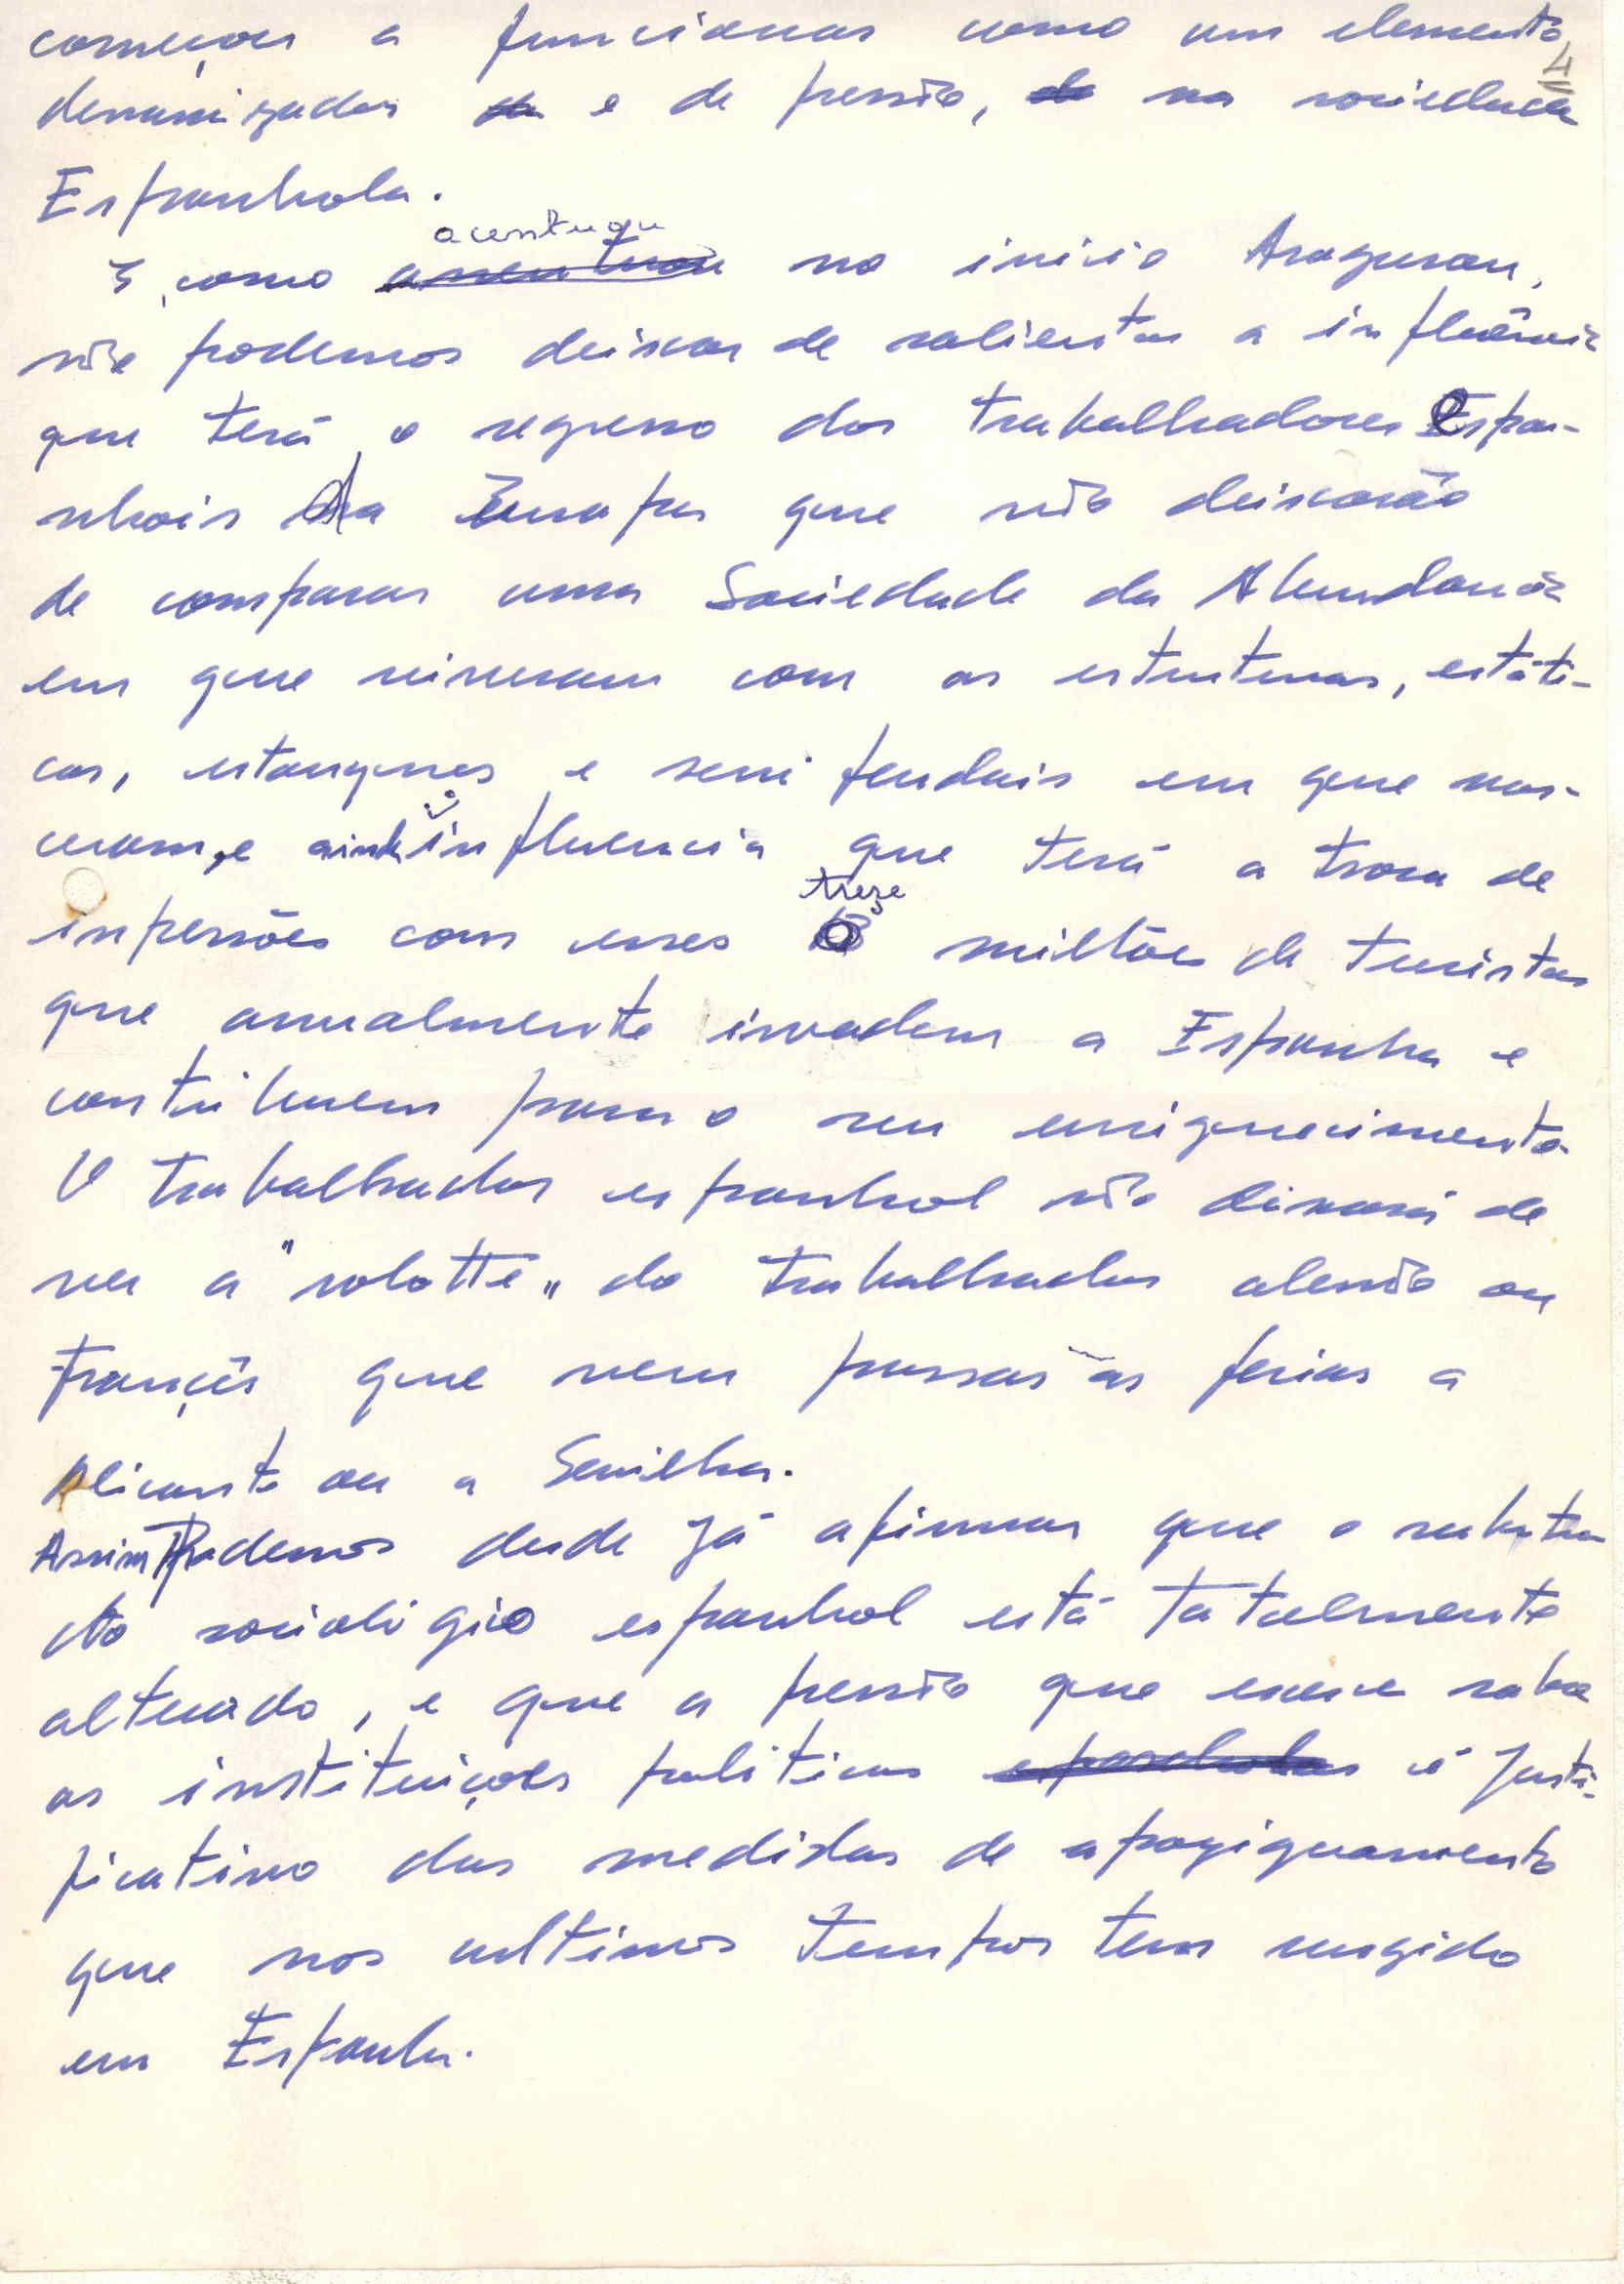 começou a funcionar como um elemento
4
denamizador e de pressão, na sociedade
Espanhola.
acentuou
E, como assentuou no inicio Aragueren,
não podemos deixar de salientar a influência
que terá o regresso dos trabalhadores Espa-
nhois da Europa que não deixarão
de comparar uma Sociedade da Abundancia
em que viveram com as estruturas, estáti-
cas, estanques e semi feudais em que nas-
ceram, e ainda influencia que terá a troca de
treze
inpressões com esses milhões de turistas
que anualmente invadem a Espanha e
contribuem para o seu enriquecimento.
O trabalhador espanhol não deixará de
ver a "rolotte" do trabalhador alemão ou
françês que vem passar as ferias a
Alicante ou a Sevilha.
Assim Podemos desde já afirmar que o substra
to sociológico espanhol está totalmente
alterado, e que a pressão que exerce sobre
as instituições politicas espanholas é justi-
ficativo das medidas de apaziguamento
que nos ultimos tempos tem surgido
em Espanha.